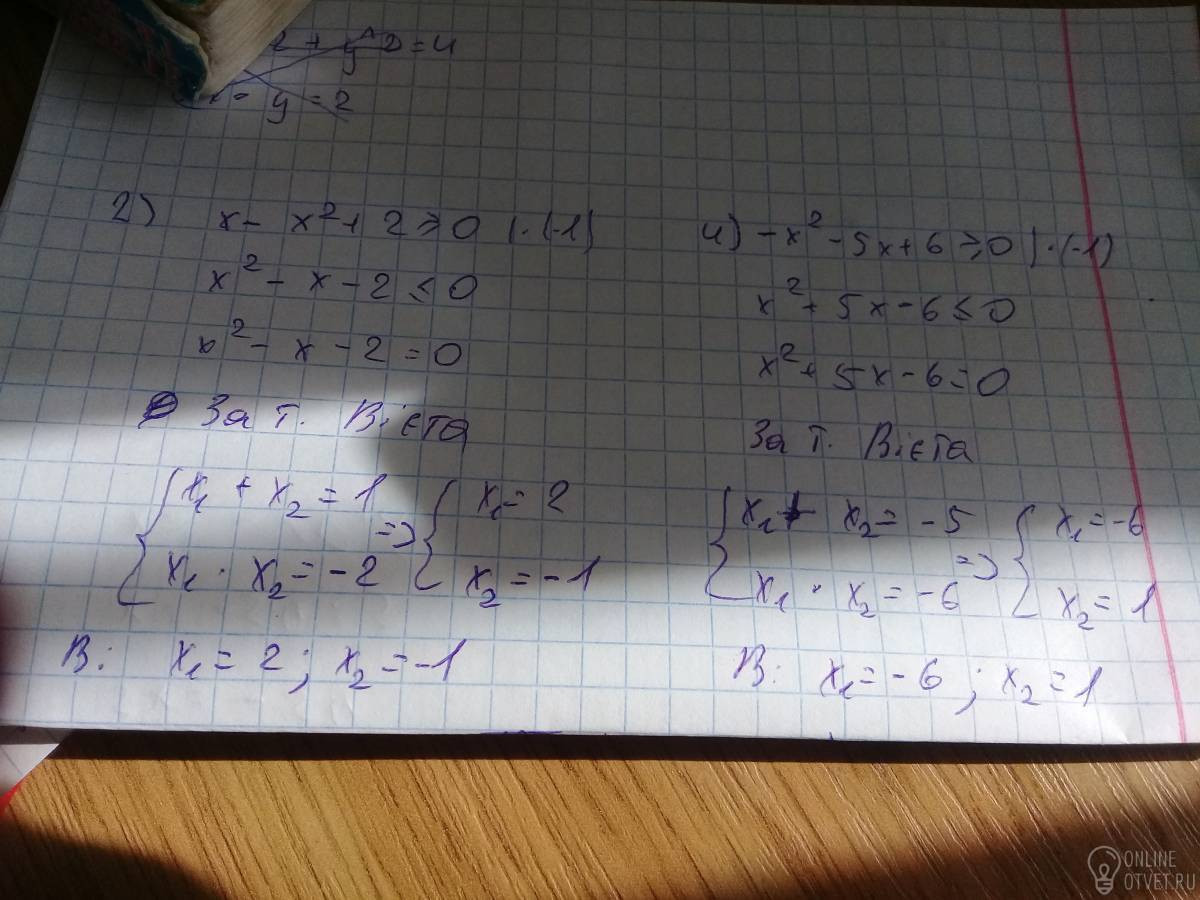 2 + y^2 = 4
x - y = 2
2) x - x² + 2 ⩾ 0 | · (-1)
x² - x - 2 ≤ 0
x² - x - 2 = 0
За т. Вієта
{ x₁ + x₂ = 1
x₁ · x₂ = -2 => { x₁ = 2
x₂ = -1
В: x₁ = 2; x₂ = -1
4) -x² - 5x + 6 ⩾ 0 | · (-1)
x² + 5x - 6 ≤ 0
x² + 5x - 6 = 0
За т. Вієта
{ x₁ + x₂ = -5
x₁ · x₂ = -6 => { x₁ = -6
x₂ = 1
В: x₁ = -6; x₂ = 1
ONLINE
OTVET.RU